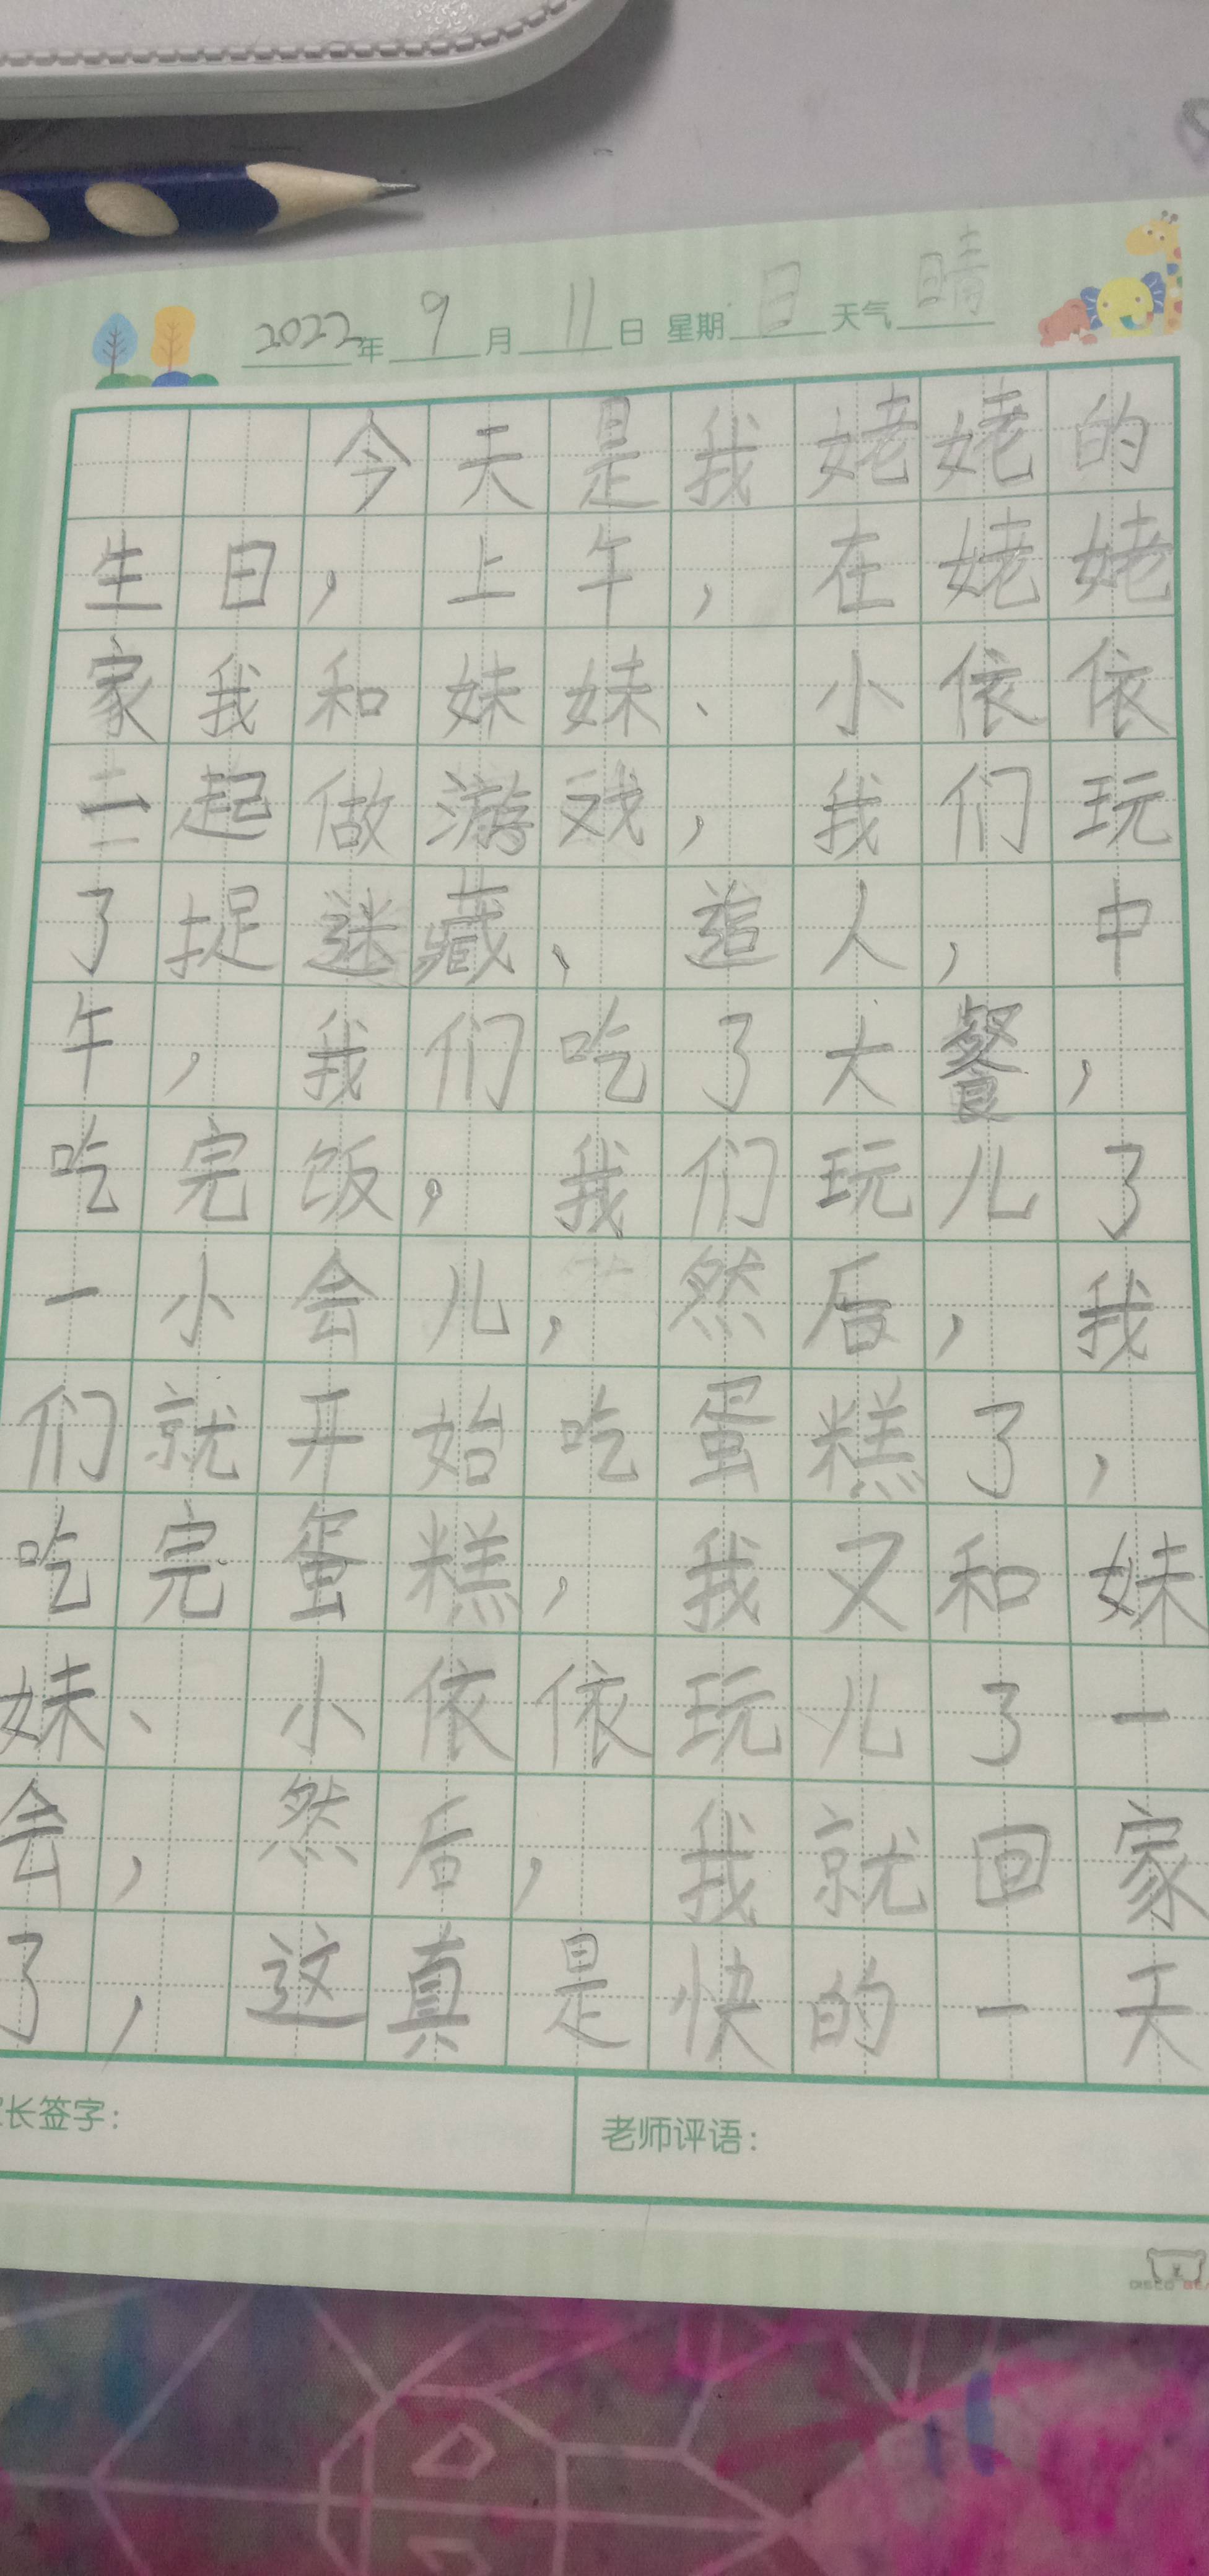 2022年9月11日 星期日 天气晴
今天是我姥姥的
生日，上午，在姥姥
家我和妹妹、小依依
一起做游戏，我们玩
了捉迷藏、追人，中
午，我们吃了大餐，
吃完饭，我们玩儿了
一小会儿，然后，我
们就开始吃蛋糕了，
吃完蛋糕，我又和妹
妹、小依依玩儿了一
会，然后，我就回家
了，这真是快的一天
长签字：
老师评语：